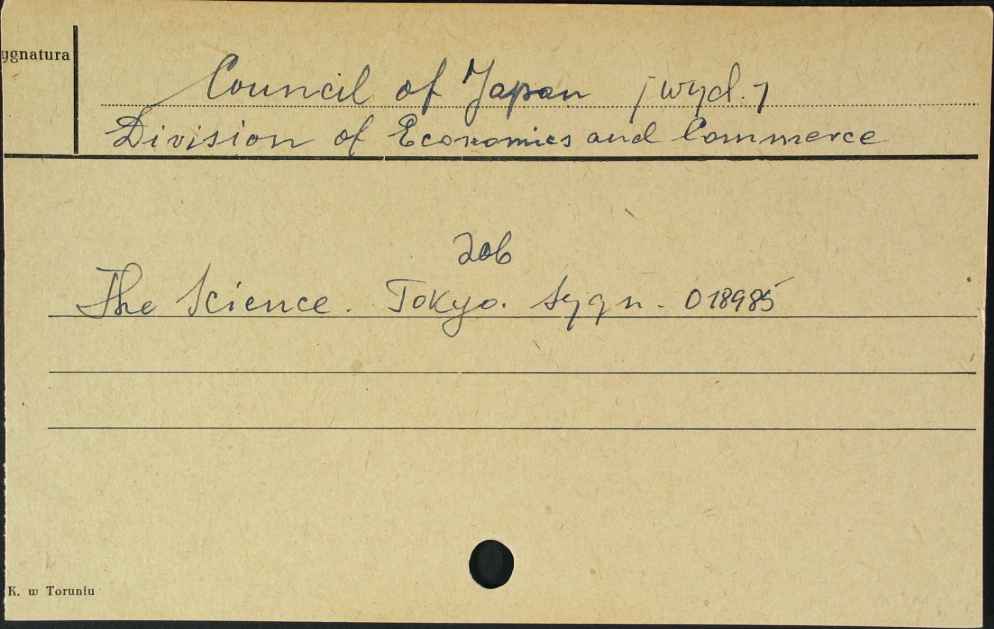 ygnatura
Council of Japan /wyd./
Division of Economics and Commerce
Zob
The Science. Tokyo. Sygn. 018985
K. w Toruniu